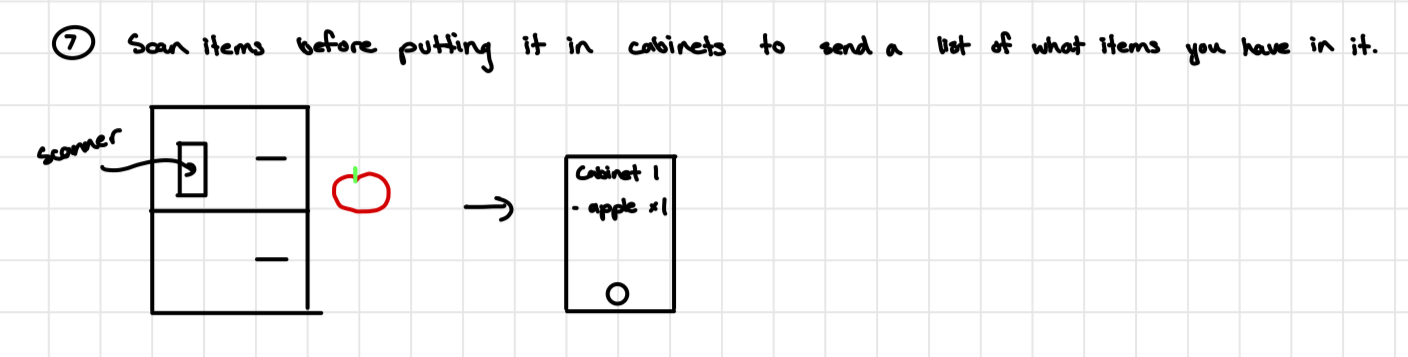 7 Scan items before putting it in cabinets to send a list of what items you have in it.
scanner
Cabinet 1
- apple x1